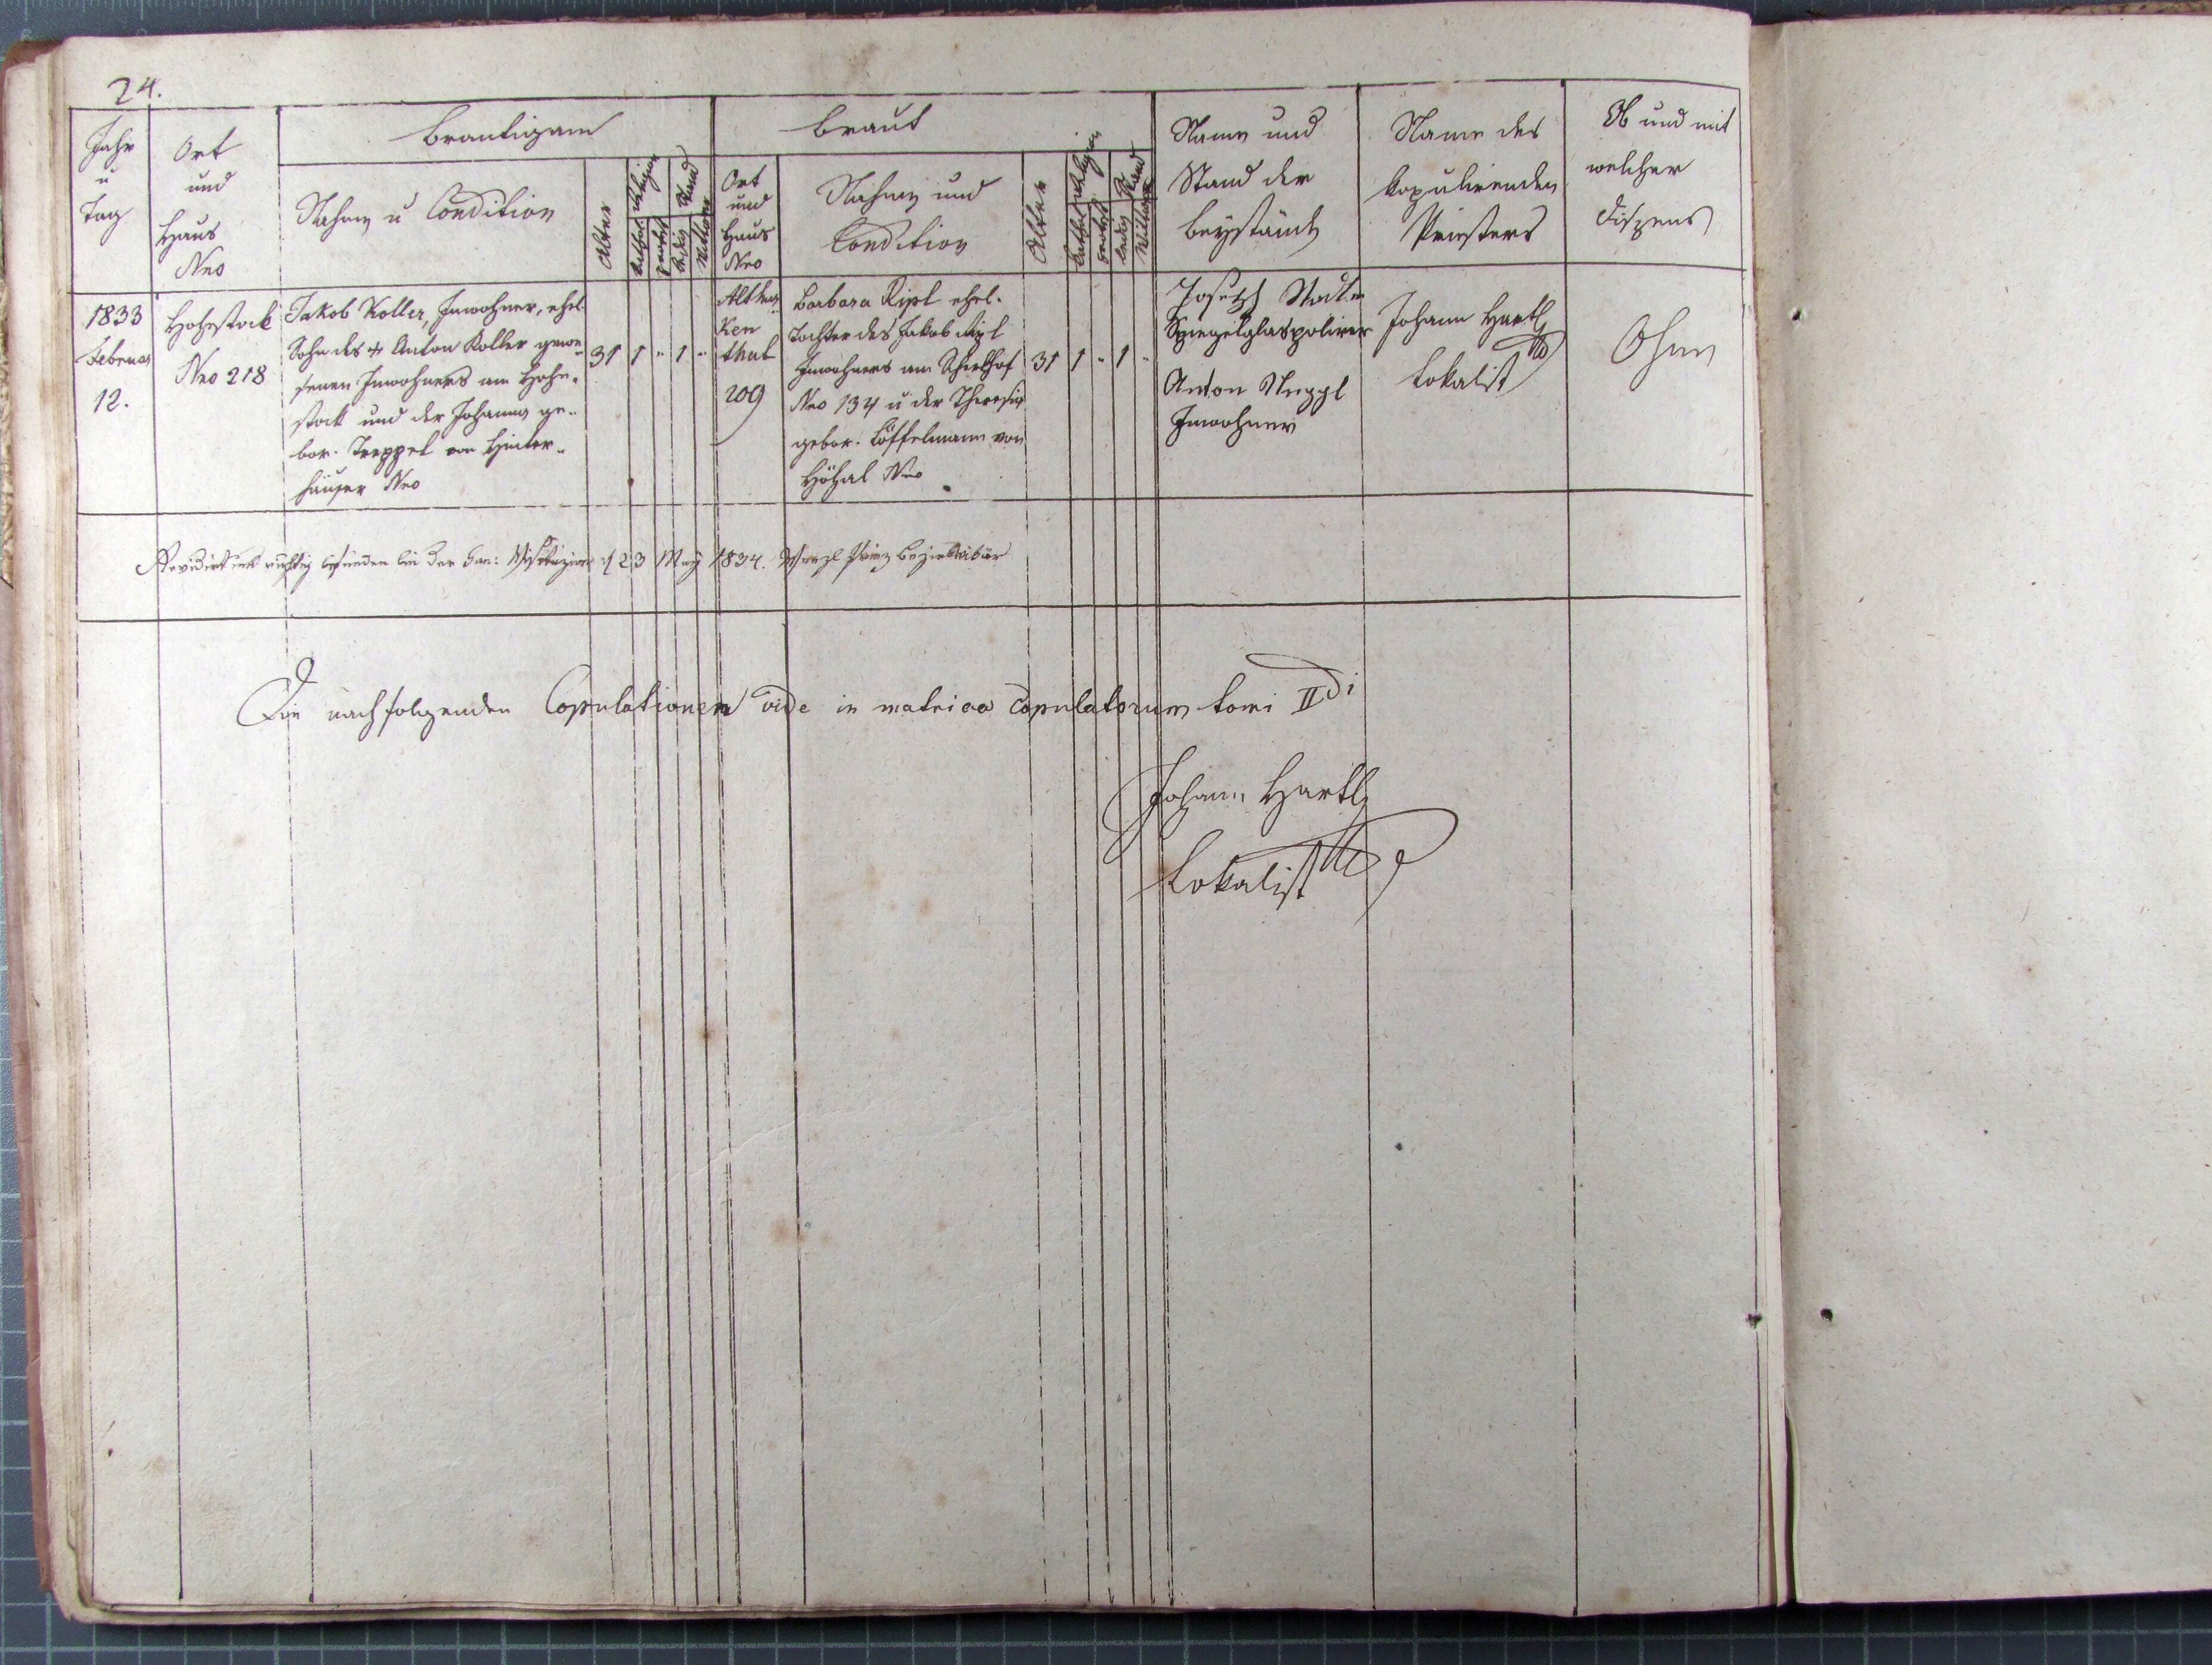 24.
Jahr
u
Tag
Ort
und
Haus
Nro
Brautigam
Nahme u Condition
Alter
Religion
Kathol
protest
Stand
ledig
Wittwer
Braut
Ort
und
Haus
Nro
Nahme und
Condition
Alter
Religion
Kathol
protest
Stand
ledig
Wittwe
Name und
Stand der
Beystände
Name des
kopulirenden
Priesters
Ob und mit
welcher
Dispens
1833
Februar
12.
Hohestock
Nro 218
Jakob Koller, Inwohner, ehel.
Sohn des + Anton Koller gewe-
senen Inwohners am Hohe-
stock und der Johanna ge-
bor. Treppel von Hinter-
häuser Nro
31
1
"
1
"
Alt
ken
thal
209
Barbara Ripl ehel.
Tochter des Jakob Ripl
Inwohners am Scherlhof
Nro 134 u der Theresia
gebor. Löffelmann von
Höhal Nro
31
1
"
1
"
Joseph
Spiegelglaspolirer
Anton
Inwohner
Johann Hartl
Lokalist
Ohne
Revidirt und richtig befunden bei der kan: Visitazion d 23 May 1834. Prinz Bezirksvikär
Die nachfolgenden Copulationen vide in matrica Copulatorum tomi IIdi
Johann Hartl
Lokalist